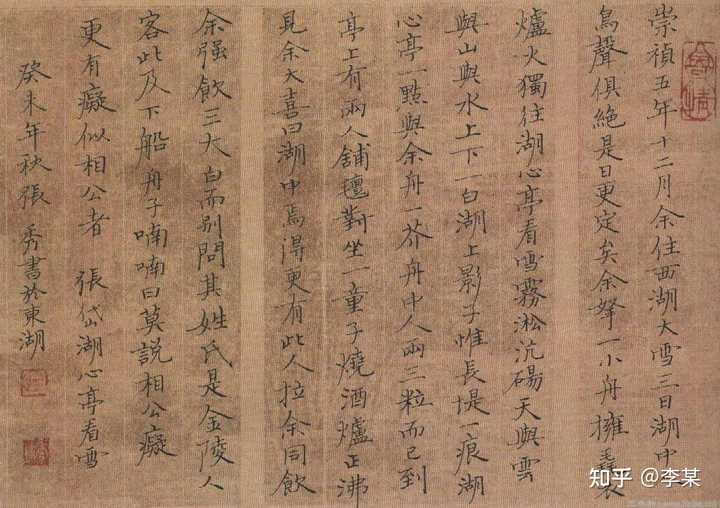 崇禎五年十二月余住西湖大雪三日湖中
鳥聲俱絕是日更定矣余拏一小舟擁毳衣
爐火獨往湖心亭看雪霧淞沆碭天與雲
與山與水上下一白湖上影子惟長堤一痕湖
心亭一點與余舟一芥舟中人兩三粒而已到
亭上有兩人鋪氈對坐一童子燒酒爐正沸
見余大喜曰湖中焉得更有此人拉余同飲
余强飲三大白而别問其姓氏是金陵人
客此及下船舟子喃喃曰莫說相公癡
更有癡似相公者 張岱湖心亭看雪
癸未年秋張秀書於東湖
知乎 @李某